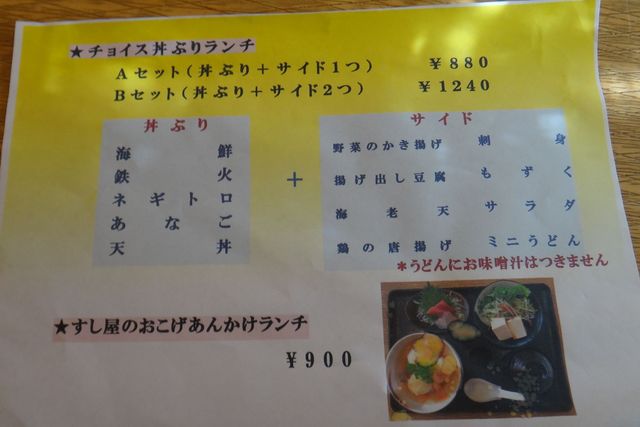 ★チョイス丼ぶりランチ
Aセット(丼ぶり+サイド1つ) ¥880
Bセット(丼ぶり+サイド2つ) ¥1240
丼ぶり
海鮮
鉄火
ネギトロ
あなご
天丼
+
サイド
野菜のかき揚げ 刺身
揚げ出し豆腐 もずく
海老天 サラダ
鶏の唐揚げ ミニうどん
*うどんにお味噌汁はつきません
★すし屋のおこげあんかけランチ
¥900